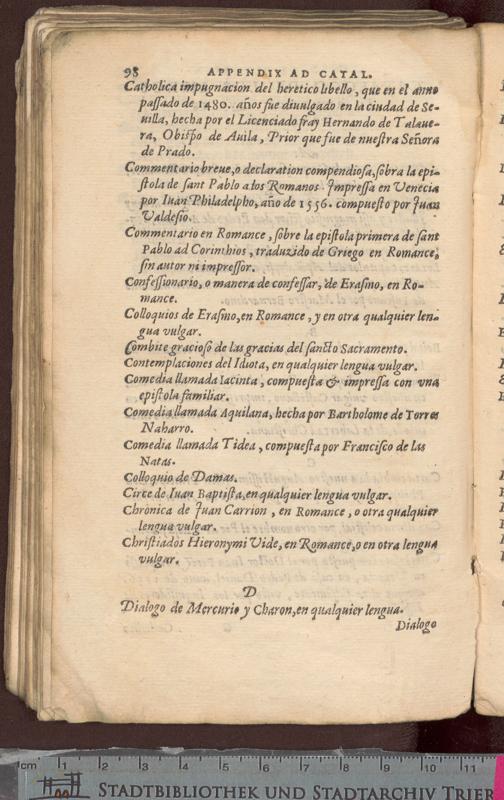 98 APPENDIX AD CATAL.
Catholica impugnacion del heretico libello, que en el anno
paſſado de 1480. años fue diuulgado en la ciudad de Se-
uilla, hecha por el Licenciado fray Hernando de Talaue-
ra, Obiſpo de Auila, Prior que fue de nueſtra Señora
de Prado.
Commentario breue, o declaration compendioſa, ſobra la epi-
ſtola de ſant Pablo a los Romanos Impreſſa en Venecia
por Iuan Philadelpho, año de 1556. compueſto por Juan
Valdeſio.
Commentario en Romance, ſobre la epiſtola primera de ſant
Pablo ad Corinthios, traduzido de Griego en Romance,
ſin autor ni impreſſor.
Confeſſionario, o manera de confeſſar, de Eraſmo, en Ro-
mance.
Colloquios de Eraſmo, en Romance, y en otra qualquier len-
gua vulgar.
Combite gracioſo de las gracias del ſancto Sacramento.
Contemplaciones del Idiota, en qualquier lengua vulgar.
Comedia llamada Iacinta, compueſta & impreſſa con vna
epiſtola familiar.
Comedia llamada Aquilana, hecha por Bartholome de Torres
Naharro.
Comedia llamada Tidea, compueſta por Franciſco de las
Natas.
Colloquio de Damas.
Circe de Iuan Baptiſta, en qualquier lengua vulgar.
Chronica de Juan Carrion, en Romance, o otra qualquier
lengua vulgar.
Chriſtiados Hieronymi Vide, en Romance, o en otra lengua
vulgar.
D
Dialogo de Mercurio y Charon, en qualquier lengua.
Dialogo
cm 1 2 3 4 5 6 7 8 9 10 11
STADTBIBLIOTHEK UND STADTARCHIV TRIER